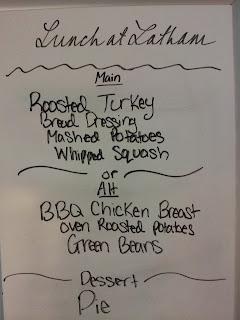 Lunch at Latham
Main
Roasted Turkey
Bread Dressing
Mashed Potatoes
Whipped Squash
or
Alt
BBQ Chicken Breast
oven Roasted potatoes
Green Beans
Dessert
Pie